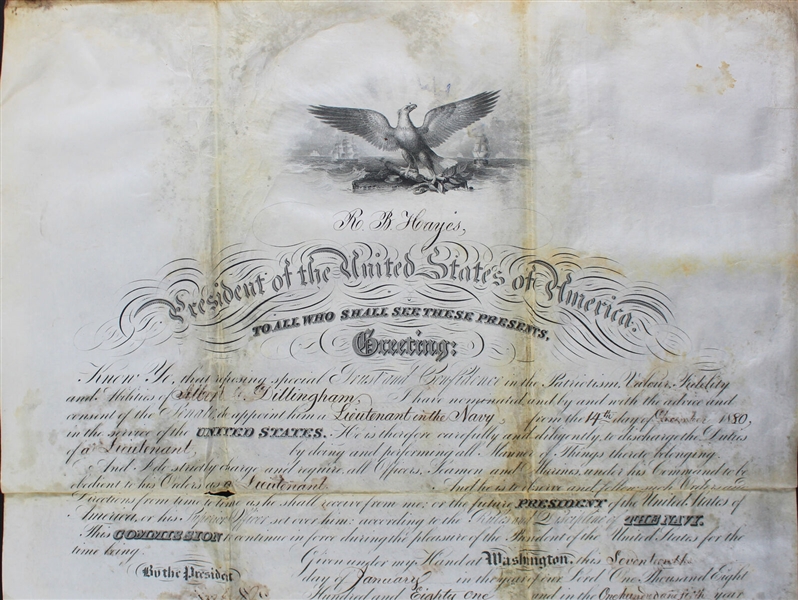 R B Hayes,
President of the United States of America.
TO ALL WHO SHALL SEE THESE PRESENTS,
Greeting:
Know Ye, that reposing special Trust and Confidence in the Patriotism, Valour, Fidelity
and Abilities of Dillingham, I have nominated and by and with the advice and
consent of the Senate do appoint him a Lieutenant in the Navy from the 14th day of 1880,
in the service of the UNITED STATES. He is therefore carefully and diligently to discharge the Duties
of a Lieutenant by doing and performing all Manner of Things thereto belonging.
And I do strictly charge and require all Officers, Seamen and Marines under his Command to be
obedient to his Orders as a Lieutenant And he is to observe and follow such Orders and
Directions from time to time as he shall receive from me, or the future PRESIDENT of the United States of
America, or his Officer set over him, according to the Rules and Discipline of THE NAVY.
This COMMISSION to continue in force during the pleasure of the President of the United States for the
time being.
Given under my Hand at Washington, this Seventeenth
By the President
day of January in the year of our Lord One Thousand Eight
Hundred and Eighty one and in the One hundred and fifth year